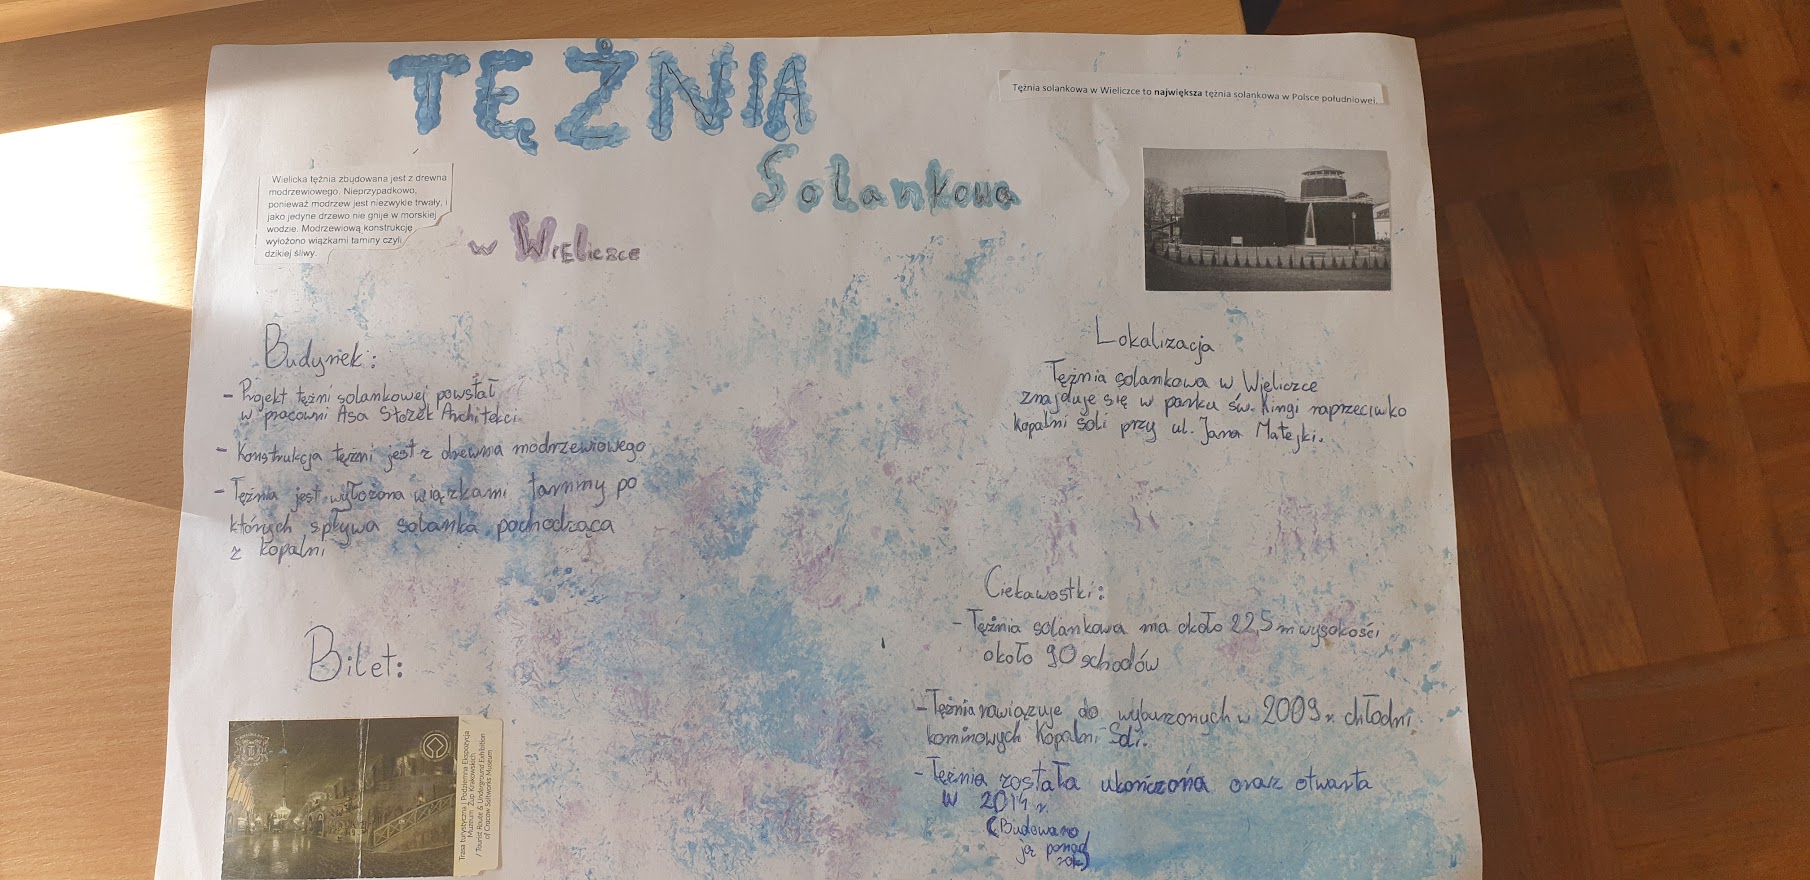 TĘŻNIA
Solankowa
w Wieliczce
Tężnia solankowa w Wieliczce to największa tężnia solankowa w Polsce południowej.
Wielicka tężnia zbudowana jest z drewna
modrzewiowego. Nieprzypadkowo,
ponieważ modrzew jest niezwykle trwały, i
jako jedyne drzewo nie gnije w morskiej
wodzie. Modrzewiową konstrukcję
wyłożono wiązkami taminy czyli
dzikiej śliwy.
Budynek:
- Projekt tężni solankowej powstał
w pracowni Asa Stożek Architekci
- Konstrukcja tężni jest z drewna modrzewiowego
- Tężnia jest wyłożona wiązkami tarniny po
których spływa solanka pochodząca
z kopalni
Bilet:
Trasa turystyczna | Podziemna Ekspozycja
Muzeum Żup Krakowskich
/ Tourist Route & Underground Exhibition
of Cracow Saltworks Museum
Lokalizacja
Tężnia solankowa w Wieliczce
znajduje się w parku św. Kingi naprzeciwko
kopalni soli przy ul. Jana Matejki.
Ciekawostki:
- Tężnia solankowa ma około 22,5 m wysokości
około 90 schodów
- Tężnia nawiązuje do wyburzonych w 2009 r. chłodni
kominowych Kopalni Soli.
- Tężnia została ukończona oraz otwarta
w 2014 r.
(Budowano
ją ponad
rok)